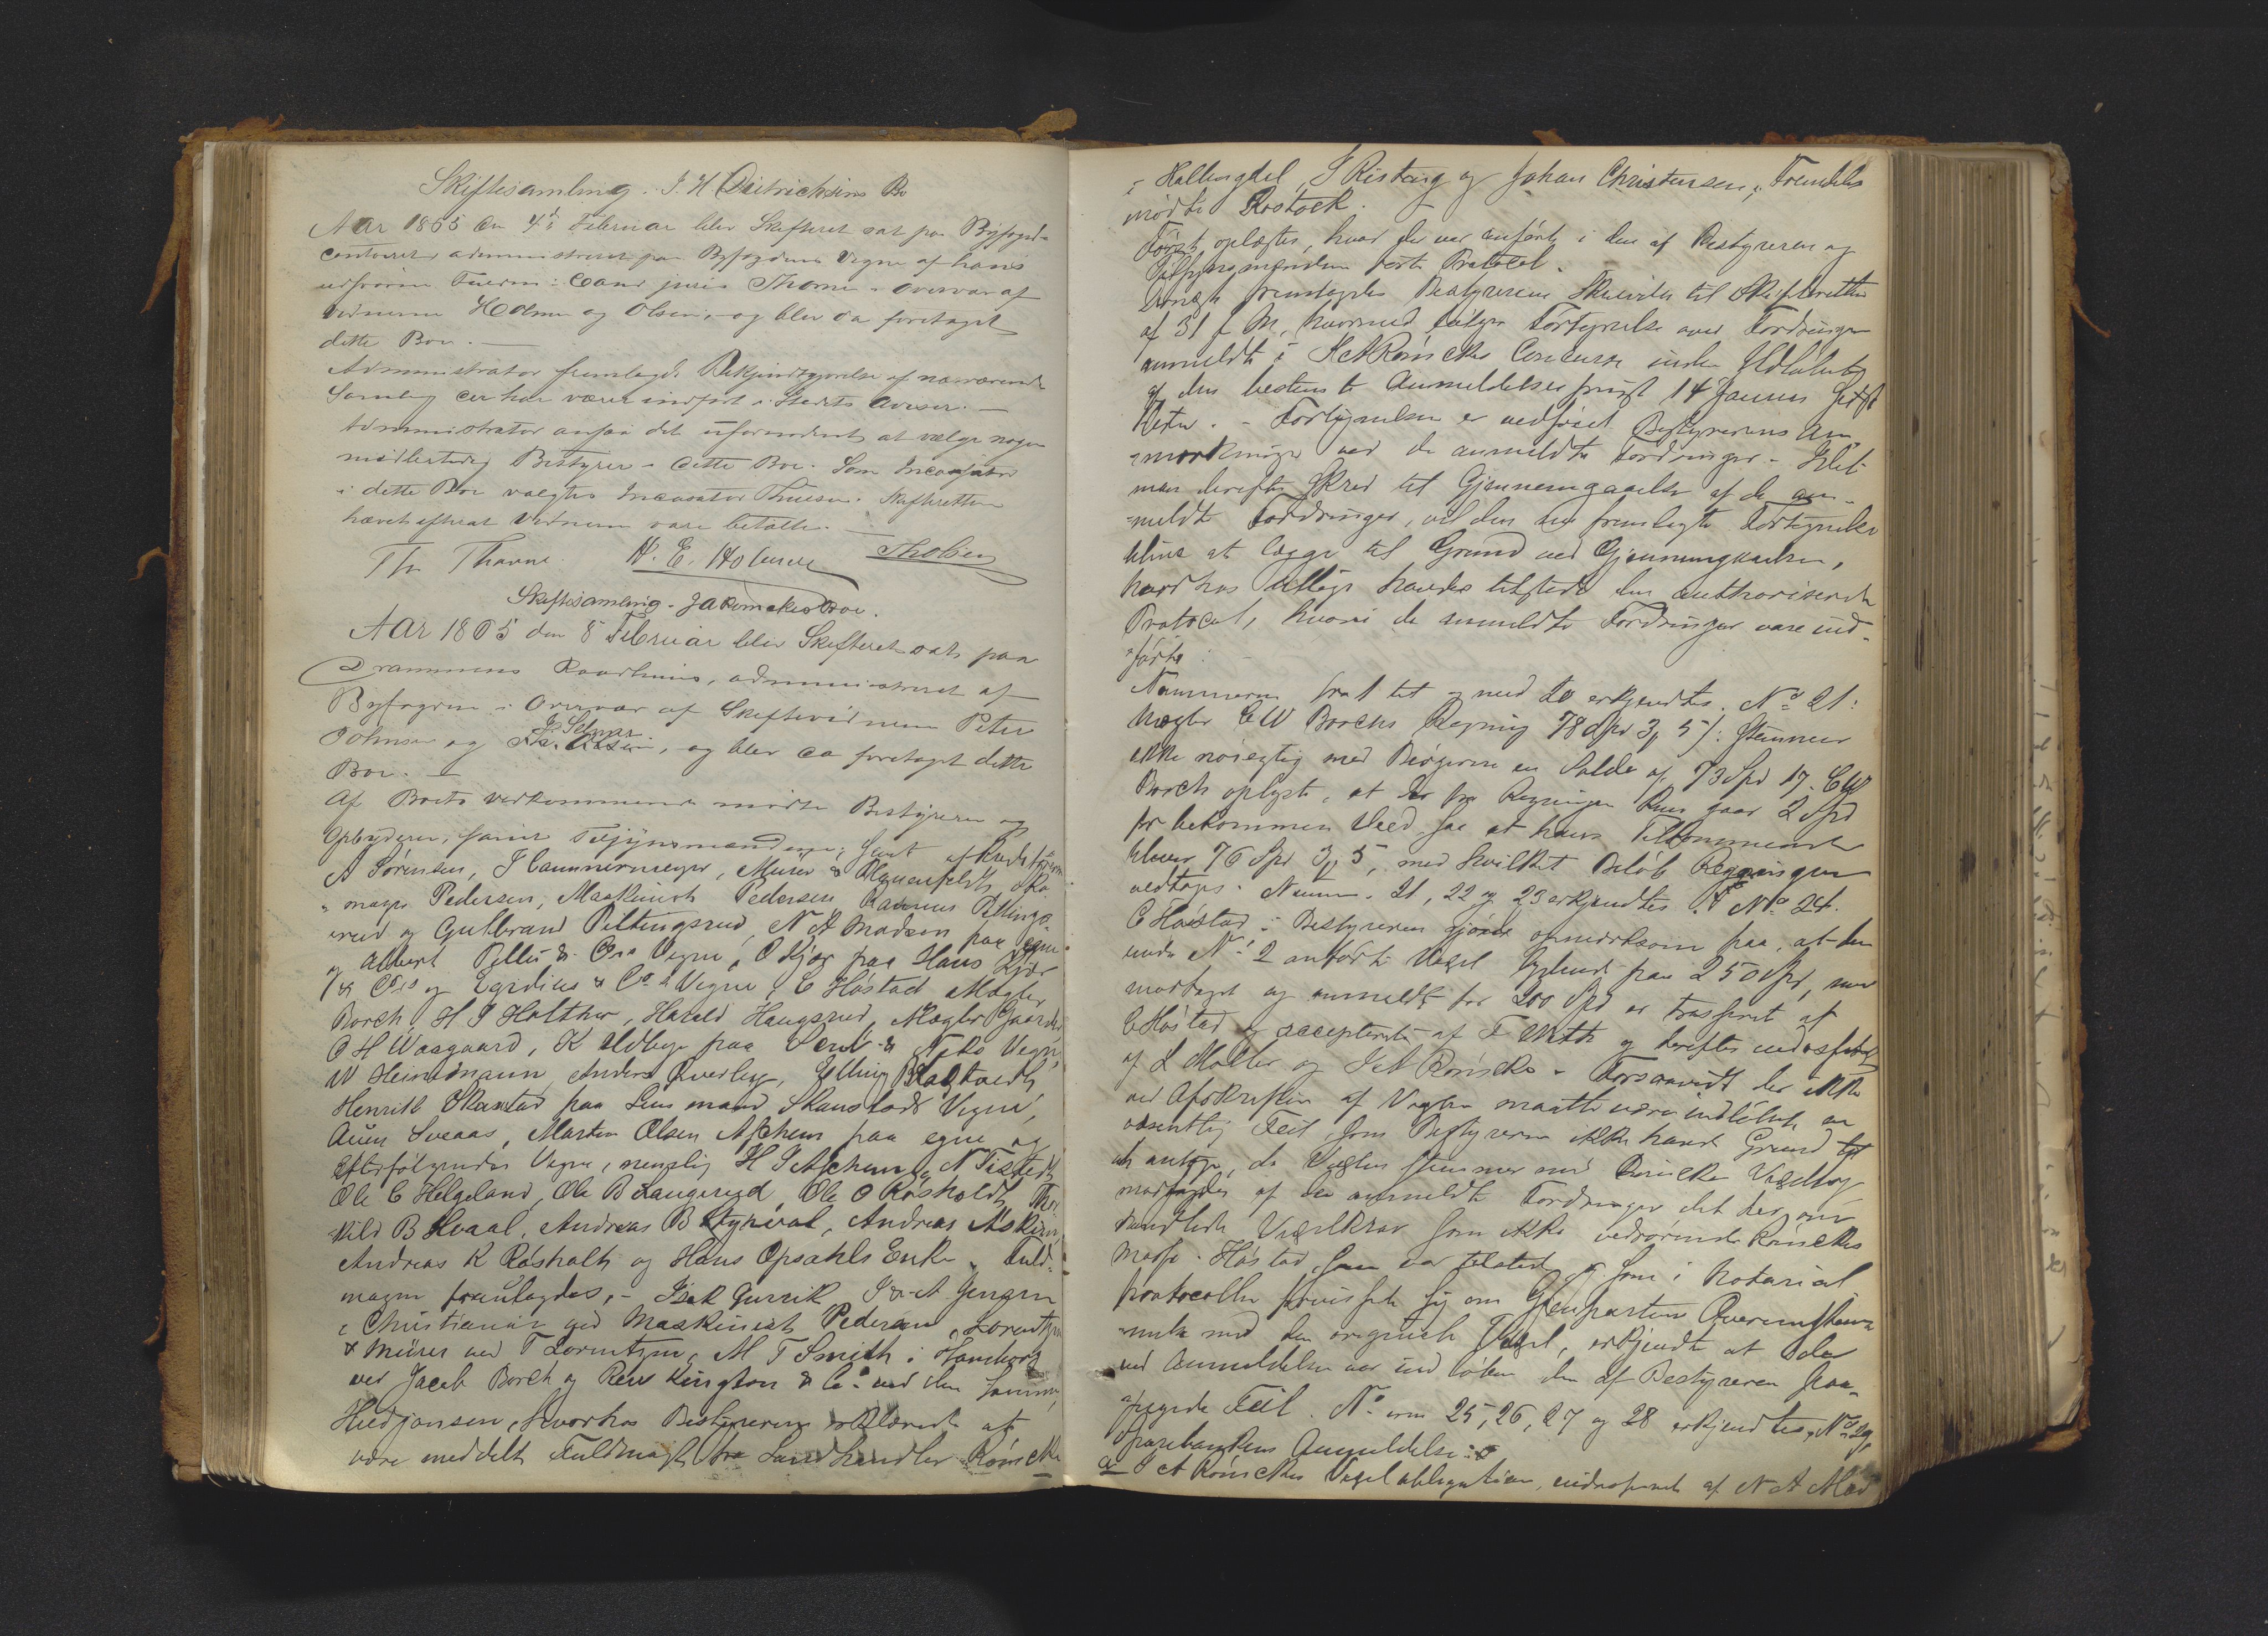 Skiftesamling. J. H Dietrichsens Bo
Aar 1865 den 4de Februar blev Skifteret sat paa Byfoged-
contoiret administreret paa Byfogdens Vegne af hans
edsvorne Fuldm: Cand juris Thorne i Overvær af
Vidnerne Holme og Olsen, og blev da foretaget
dette Boe. —
Administrator fremlagde Bekjendtgjørelse af nærværende
Samling der har været indført i Stedets Aviser. —
Administrator ansaa det ufornødent at vælge nogen
midlertidig Bestyrer i dette Boe. Som Incassator
i dette Boe valgtes Incassator Thuesen. Skifteretten
hævet efterat Vidnerne vare betalte. —
Thorne. H. E. Holme
Skiftesamling i J A Rømckes Boe.
Aar 1865 den 8 Februar blev Skifteret sat paa
Drammens Raadhuus, administreret af
Byfogden i Overvær af Skiftevidnerne Peter
Johnsen og og blev da foretaget dette
Boe. —
Af Boets Vedkommende mødte Bestyreren og
Opbyderen, samt Tilsynsmændene; samt af Kreditorerne
A Sørensen, J Hammermeyer, Mürer & Sko
-mager Pedersen, Maskinist Pedersen Rasmus Pettings
-rud og Gulbrand Pettingsrud, N A Madsen paa egne
og Albert & Co Vegne, O Kjær paa Hans Kjær
& Co og Egidius & Co Vegne, E Høstad Mægler
Borch, H J Holther, Harald Haugsrud, Mægler Gaarder
O H Waagaard, K paa & Vegne,
W Heinemann, Anders Overby, Elling
Henrik Skanstad paa Lensmand Skanstads Vegne,
Auen Sveaas, Martin Olsen Aschem paa egne og
Efterfølgendes Vegne, nemlig H J Aschem, N Tistedt
Ole C Helgeland, Ole B Laugeryd, Ole O Røsholdt, Thor
kild B Hvaal, Andreas B Andreas Askjem,
Andreas K Røsholt og Hans Opsahls Enke. Fuld-
magter fremlagdes, — Isak J & A Jensen
i Christiania ved Maskinist Pedersen, Lorentzen
& Mürer ved T Lorentzen, M T Smith i Hamborg
ved Jacob Borch og Rew Kington & Co ved den Samme,
hvorhos Bestyreren erklærede at
være meddelt Fuldmagt fra Landhandler Rømcke
i Hallingdal, J Risting og Johan Christensen; Fremdeles
mødte Rostock.
Først oplæstes, hvad der var anført i den af Bestyreren og
Tilsynsmændene førte Protocol.
Dernæst fremlagdes Bestyrerens Skrivelse til Skifteretten
af 31 f M, hvormed følger Fortegnelse over Fordringer
anmeldte i J A Rømckes Concurs inden Udløbet
af den bestemte Anmeldelsesfrist 14 Januar
— Fortegnelsen er vedføiet Bestyrerens An-
-mærkninger ved de anmeldte Fordringer. — Idet
man derefter skred til Gjennemgaaelse af de an-
-meldte Fordringer, vil den her fremlagte Fortegnelse
blive at lægge til Grund ved Gjennemgaaelsen,
hvorhos tillige havdes tilstede den authoriserede
Protocol, hvori de anmeldte Fordringer vare ind-
-førte:
Nummerne fra 1 til og med 20 erkjendtes. No 21:
Mægler C W Borchs Regning 78 Spd 3 5 /: stemmer
ikke nøiagtig med Bøgerne en Saldo af 73 Spd 17. C W
Borch oplyste, at der fra Regningen Kun gaar 2 Spd
for bekommen Veed, saa at hans Tilkommende
bliver 76 Spd 3 5, med hvilket Beløb Regningen
vedtages. Numm. 21, 22 og 23 erkjendtes. No 24.
E Høstad: Bestyreren gjorde opmærksom paa, at den
under No 2 anførte Vexel lydende paa 250 Spd, men
modtaget og anmeldt for 200 Spd er trasseret af
E Høstad og accepteret af F With og derefter endosseret
af L Møller og J A Rømcke. — Forsaavidt der ikke
ved Afskriften af Vexlen maatte være indløbet en
væsentlig Feil, som Bestyreren ikke havde Grund til
at antage, da Vexlen stemmer med Rømckes Vexelbog
af den anmeldte Fordringer det her om
handlede Vexelkrav som ikke vedrørende Rømckes
Masse. Høstad, som var tilstede og som i Notarial
protocollen forvissede sig om Gjenpartens Overensstem
-melse med den originale Vexel, erkjendte at der
ved Anmeldelsen var indløben den af Bestyreren paa-
-pegede Feil. No erne 25, 26, 27 og 28 erkjendtes, No 29,
Sparebankens Anmeldelse:
a J A Rømckes Vexelobligation, endosseret af N A Mad